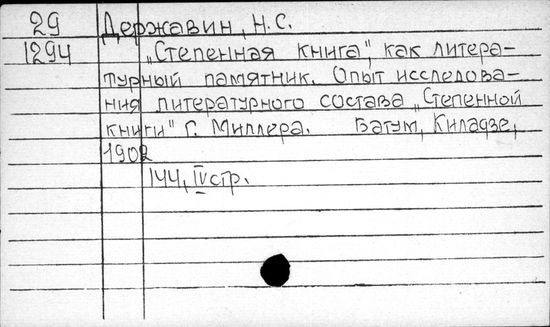 29 Державин, Н.С.
1294 „Степенная книга", как литера-
турный памятник. Опыт исследова-
ния литературного состава „Степенной
книги" Г. Миллера. Батум, Киладзе,
1902
144, IV стр.